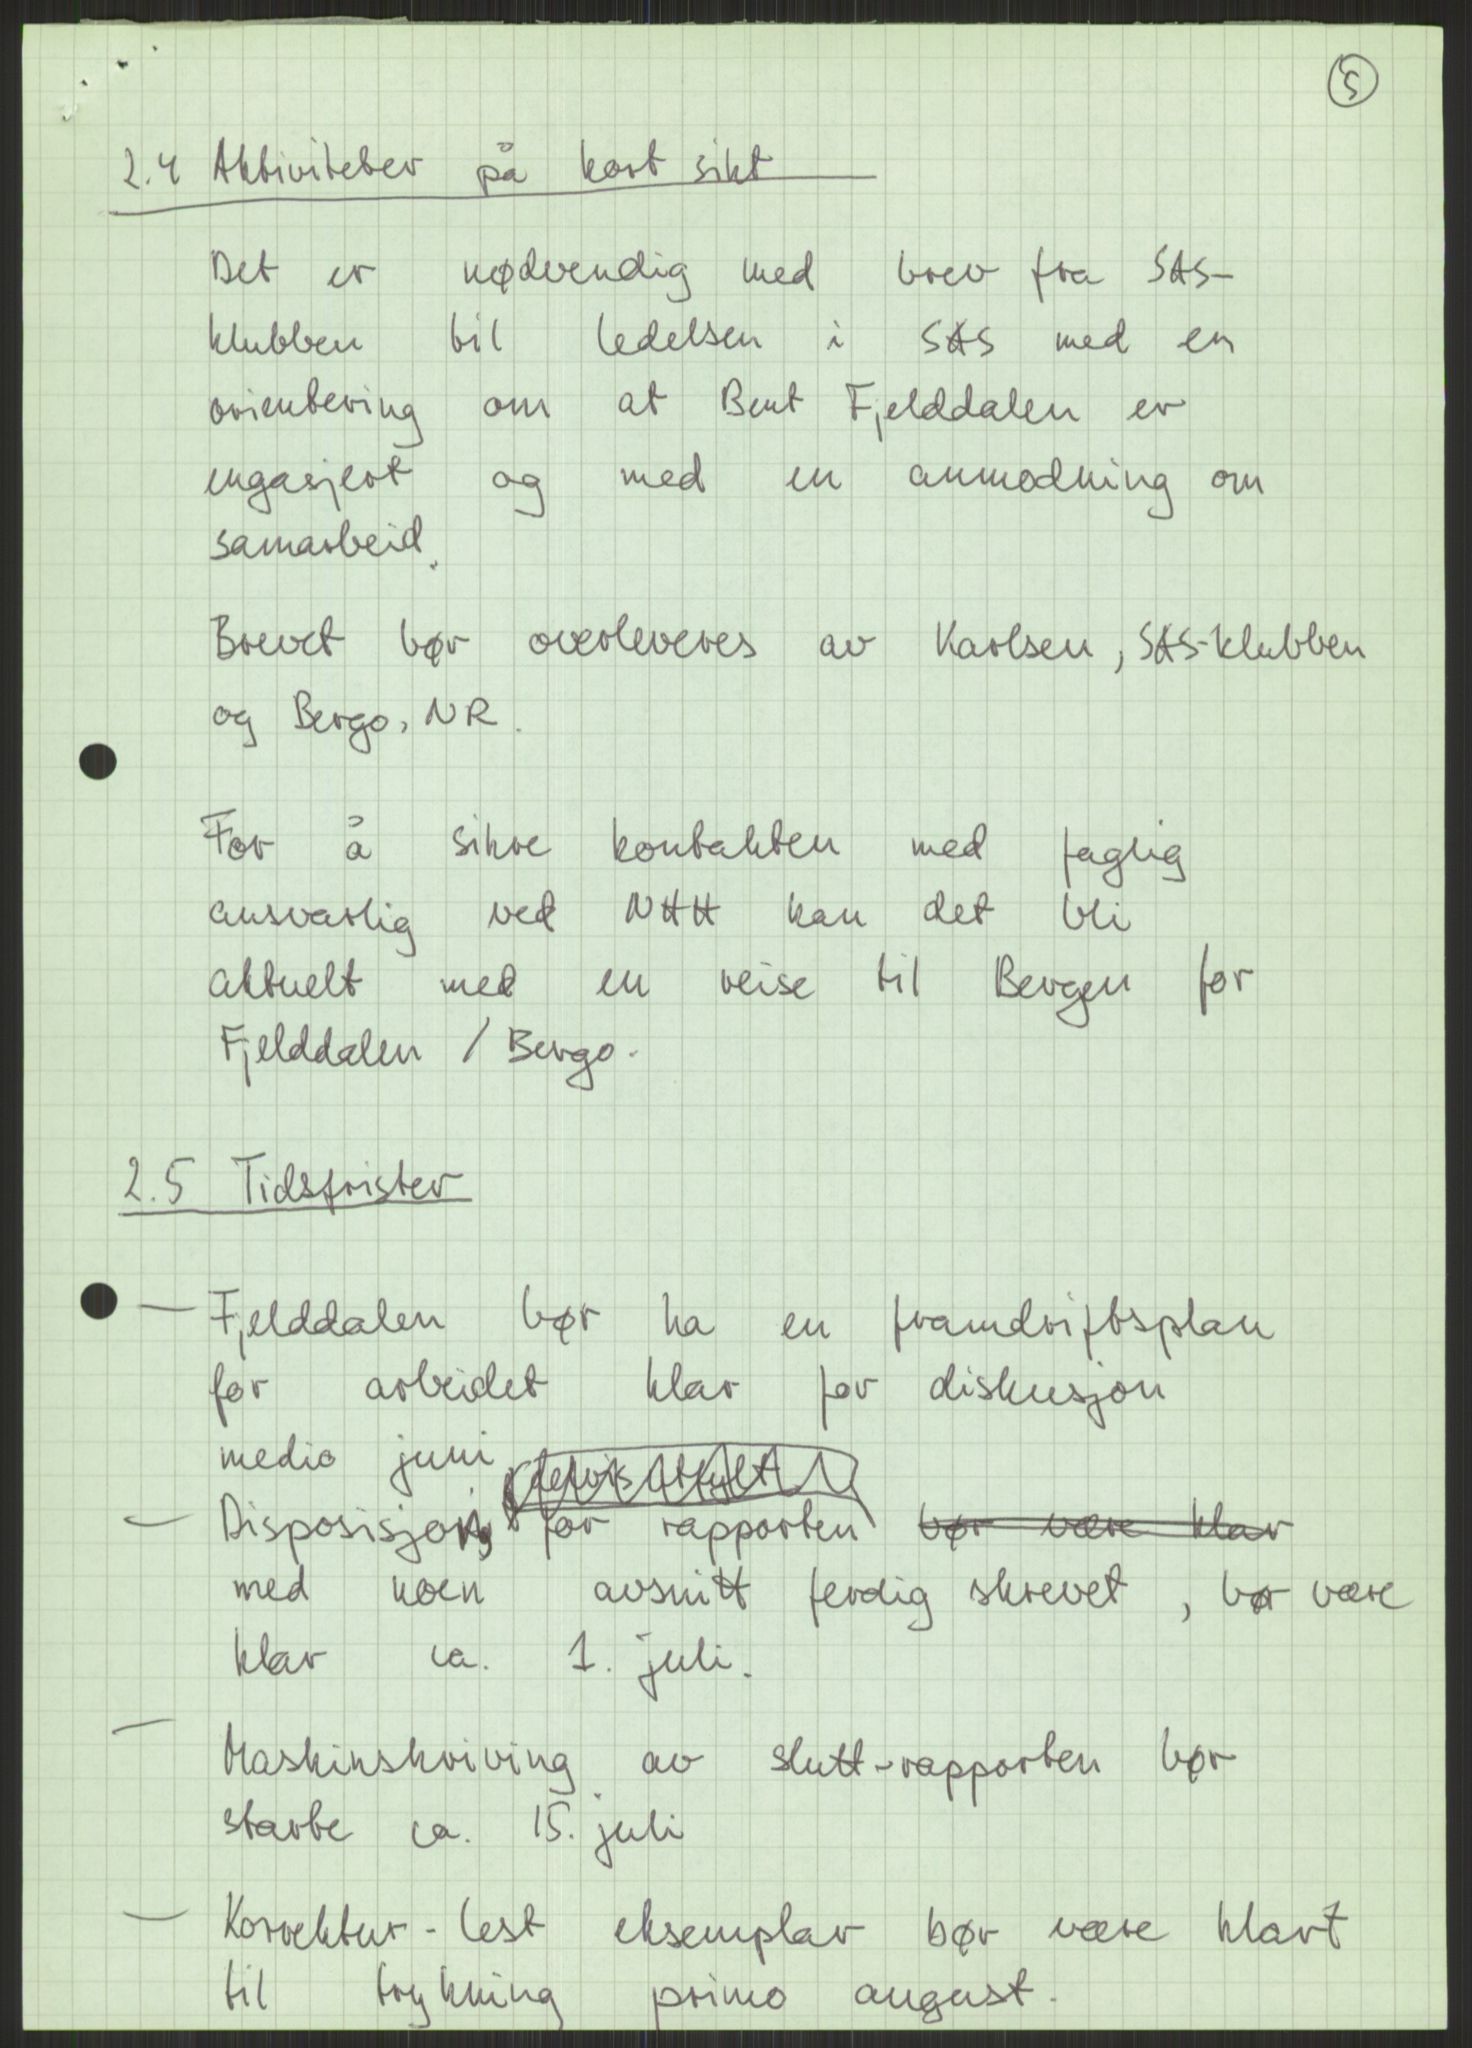 5
2.4 Aktiviteter på kort sikt
Det er nødvendig med brev fra SAS-
klubben til ledelsen i SAS med en
orientering om at Bent Fjelddalen er
engasjert og med en anmodning om
samarbeid.
Brevet bør overleveres av Karlsen, SAS-klubben
og Bergo, NR.
For å sikre kontakten med faglig
ansvarlig ved NHH kan det bli
aktuelt med en reise til Bergen for
Fjelddalen / Bergo.
2.5 Tidsfrister
— Fjelddalen bør ha en framdriftsplan
for arbeidet klar for diskusjon
medio juni
— Disposisjon for rapporten bør være klar
med noen avsnitt ferdig skrevet, bør være
klar ca. 1. juli.
— Maskinskriving av slutt-rapporten bør
starte ca. 15. juli
— Korrektur-lest eksemplar bør være klart
til trykning primo august.